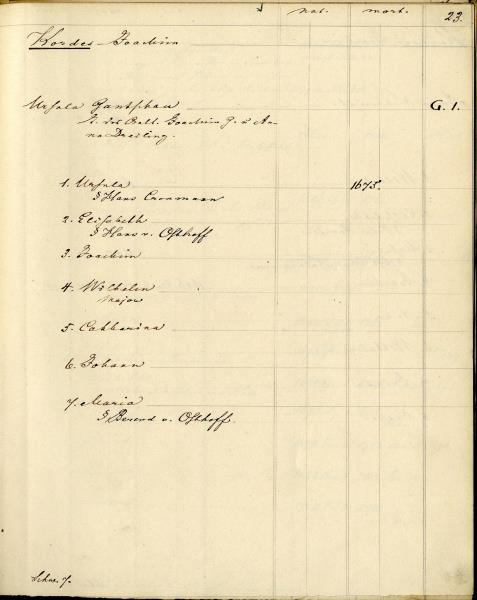 nat. mort. 23.
Kordes Joachim
Ursula Gantschau G. 1.
T. des Balt. Joachim G. u. An-
na Dreiling.
1. Ursula 1675.
§ Hans Cronmann
2. Elisabeth
§ Hans v. Osthoff
3. Joachim
4. Wilhelm
Major
5. Catharina
6. Johann
7. Maria
§ Berend v. Osthoff.